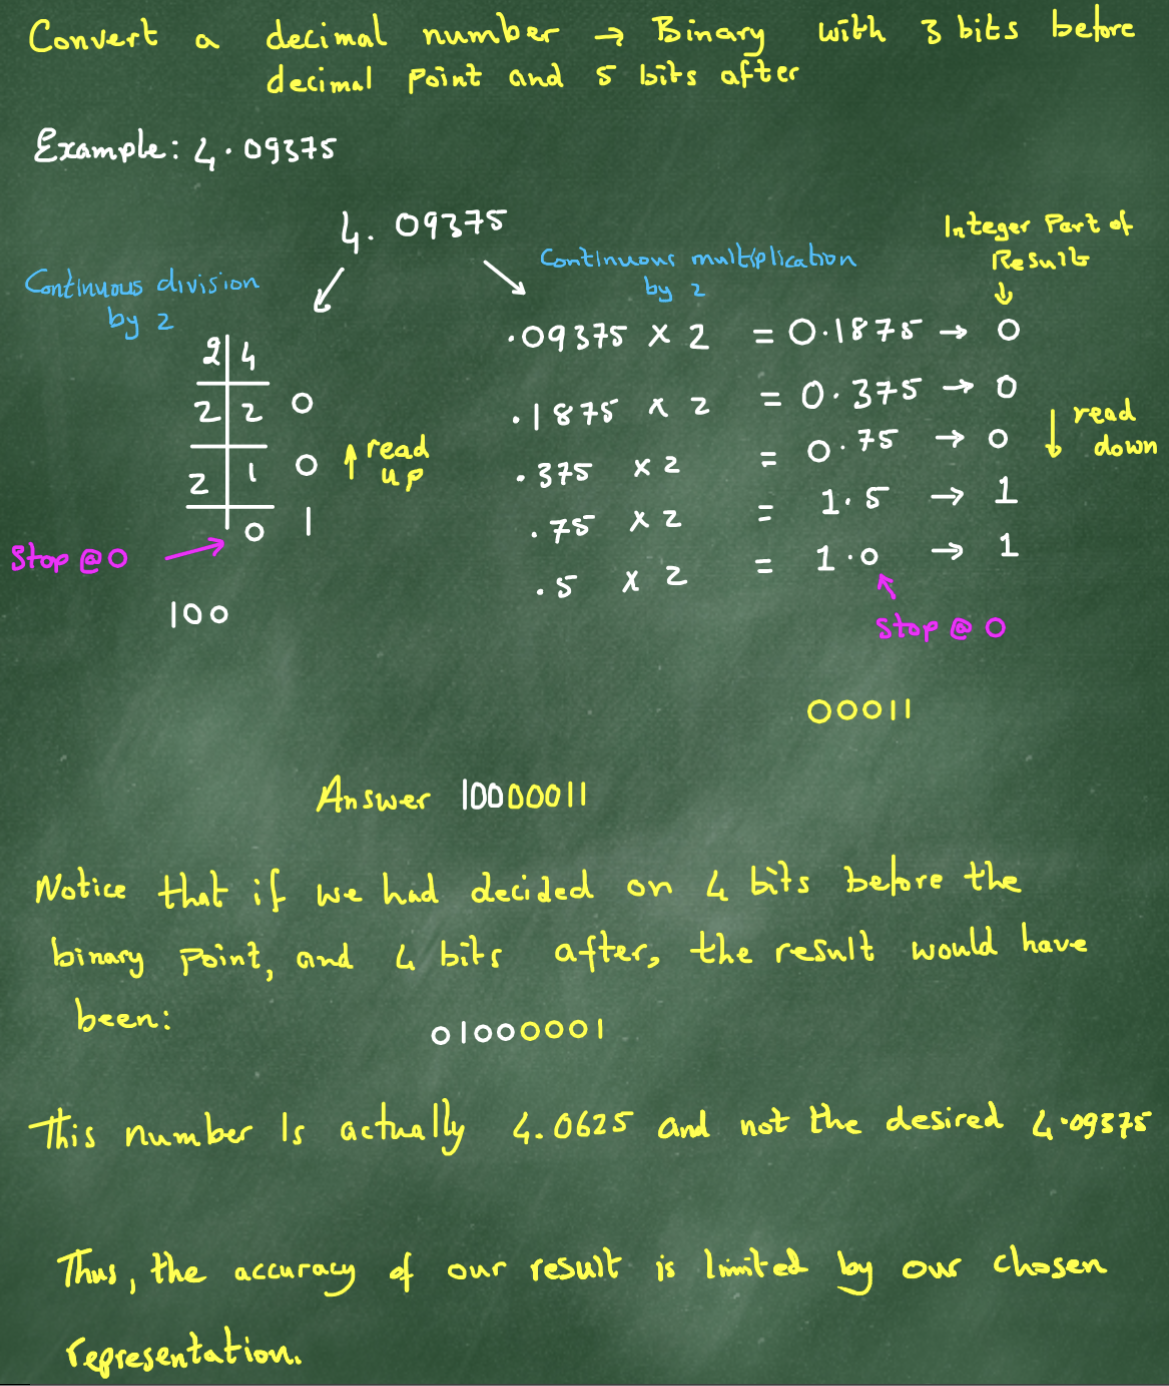 Convert a decimal number → Binary with 3 bits before
decimal point and 5 bits after
Example: 4.09375
4.09375
Continuous division
by 2
2 | 4
2 | 2 0
2 | 1 0
0 1
↑ read
up
Stop @ 0
100
Continuous multiplication
by 2
Integer Part of
Result
↓
.09375 x 2 = 0.1875 → 0
.1875 x 2 = 0.375 → 0
.375 x 2 = 0.75 → 0
.75 x 2 = 1.5 → 1
.5 x 2 = 1.0 → 1
↓ read
down
Stop @ 0
00011
Answer 10000011
Notice that if we had decided on 4 bits before the
binary point, and 4 bits after, the result would have
been:
01000001
This number Is actually 4.0625 and not the desired 4.09375
Thus, the accuracy of our result is limited by our chosen
representation.